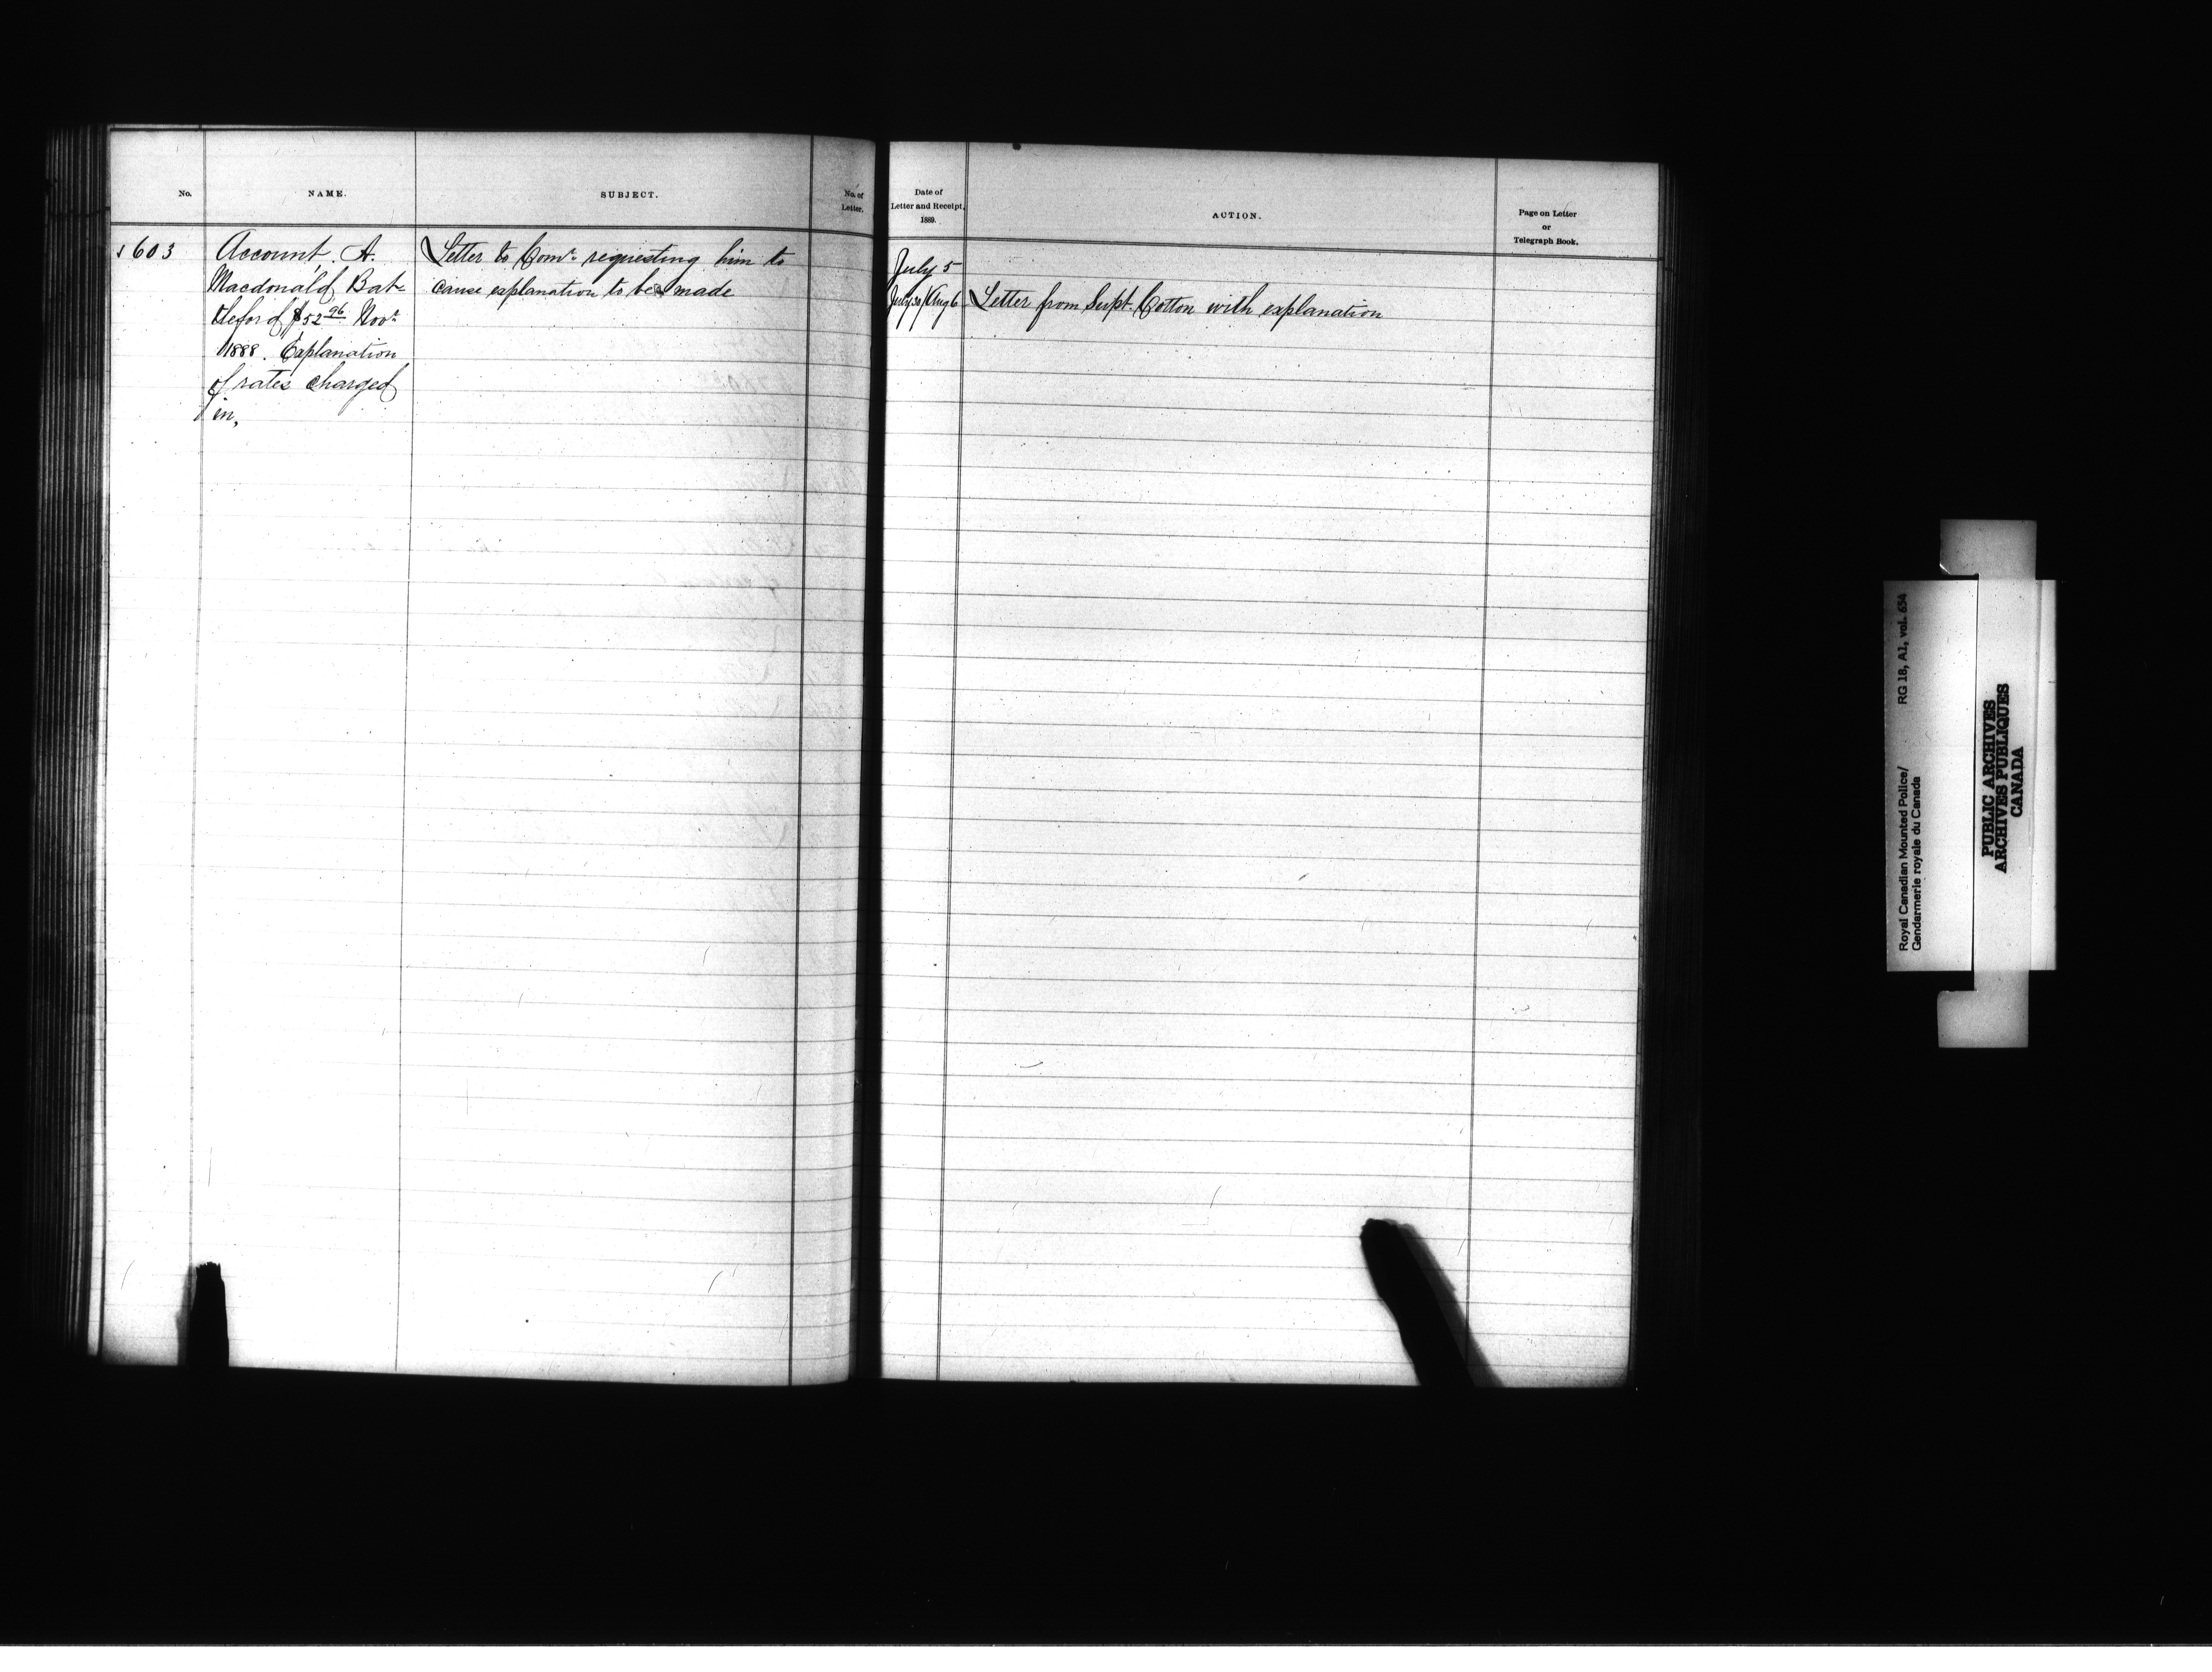 No.
NAME.
SUBJECT.
No. of
Letter.
603
Account. A.
Macdonald Bat-
tleford $52 96 Novr
1888. Explanation
of rates charged
in,
Letter to Comr. requesting him to
cause explanation to be made
Date of
Letter and Receipt.
1889.
ACTION.
Page on Letter
or
Telegraph Book.
July 5
July 30/Aug 6
Letter from Supt. Cotton with explanation
Royal Canadian Mounted Police/
Gendarmerie royale du Canada
RG 18, A1, vol. 654
PUBLIC ARCHIVES
ARCHIVES PUBLIQUES
CANADA